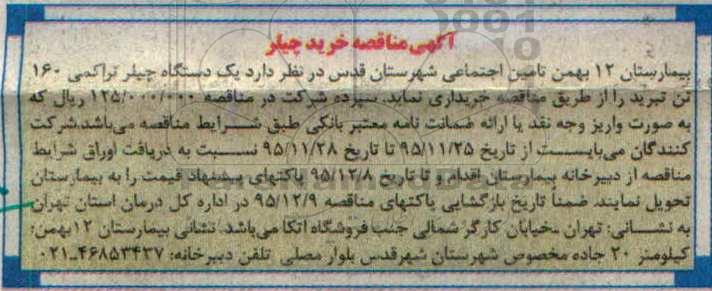 آگهی مناقصه خرید چیلر
بیمارستان ۱۲ بهمن تامین اجتماعی شهرستان قدس در نظر دارد یک دستگاه چیلر تراکمی ۱۶۰
تن تبرید را از طریق مناقصه خریداری نماید. سپرده شرکت در مناقصه ۱۲۵/۰۰۰/۰۰۰ ریال که
به صورت واریز وجه نقد یا ارائه ضمانت نامه معتبر بانکی طبق شرایط مناقصه می‌باشد.شرکت
کنندگان می‌بایست از تاریخ ۹۵/۱۱/۲۵ تا تاریخ ۹۵/۱۱/۲۸ نسبت به دریافت اوراق شرایط
مناقصه از دبیرخانه بیمارستان اقدام و تا تاریخ ۹۵/۱۲/۸ پاکتهای پیشنهاد قیمت را به بیمارستان
تحویل نمایند. ضمناً تاریخ بازگشایی پاکتهای مناقصه ۹۵/۱۲/۹ در اداره کل درمان استان تهران
به نشانی: تهران خیابان کارگر شمالی جنب فروشگاه اتکا می‌باشد. نشانی بیمارستان ۱۲بهمن:
کیلومتر ۲۰ جاده مخصوص شهرستان شهرقدس بلوار مصلی تلفن دبیرخانه: ۴۶۸۵۳۴۳۷-۰۲۱